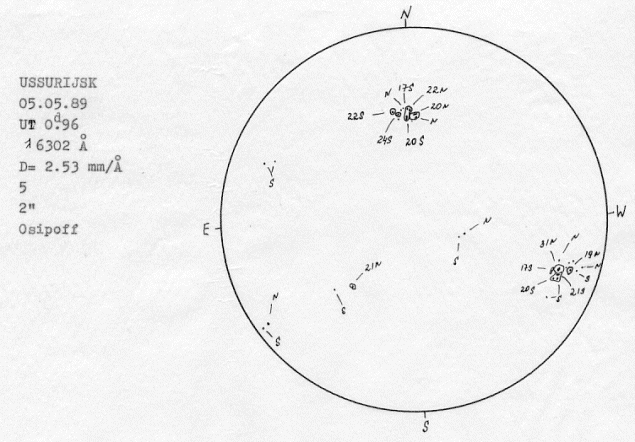 N
USSURIJSK
05.05.89
UT 0ᵈ.96
λ 6302 Å
D= 2.53 mm/Å
5
2"
Osipoff
N 17S 22N
22S 20N
24S 20S N
V
S
E
W
N
S
31N N
19N
17S N
S
20S S 21S
21N
S
N
S
S